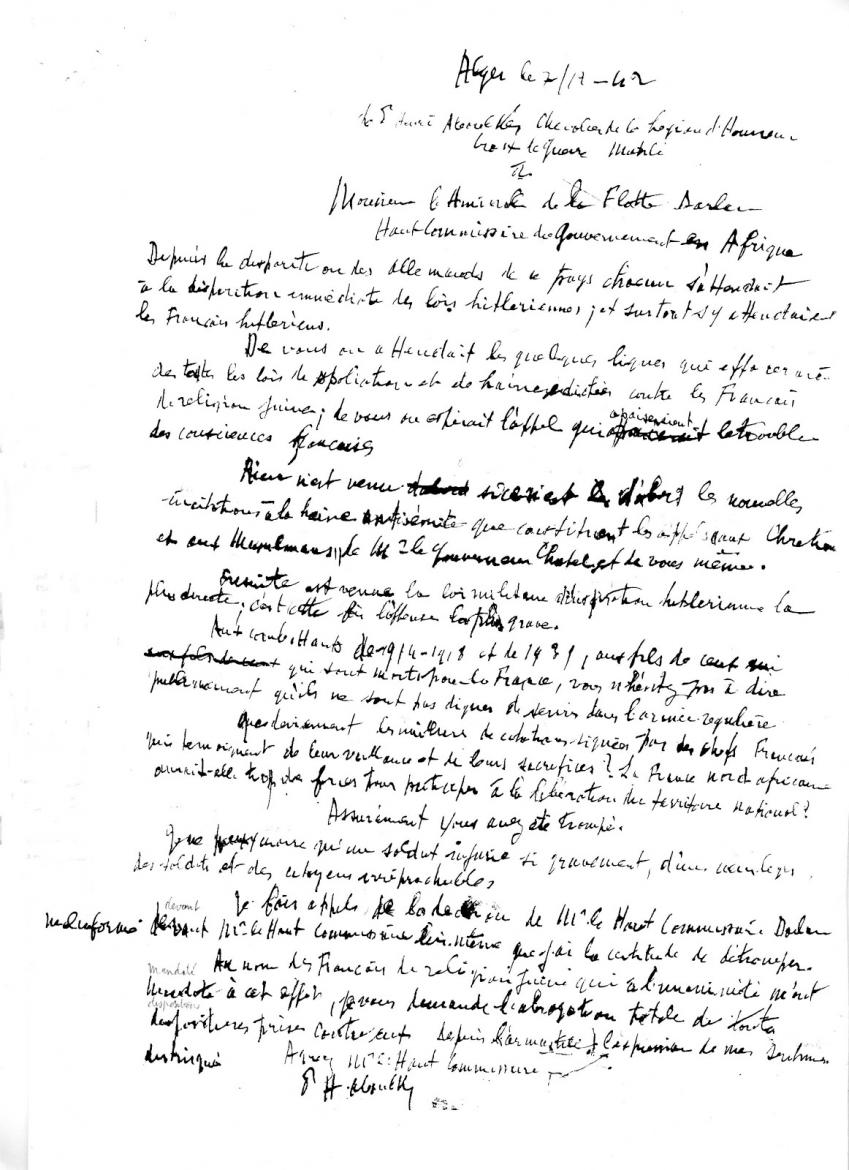 Alger le 7/12-42
Henri Aboulker Chevalier de la Legion d'Honneur
Croix de guerre
à
Monsieur l'Amiral de la Flotte Darlan
Haut Commissaire du Gouvernement en Afrique
Depuis la disparition des allemands de ce pays chacun s'attendait
à la disparition immédiate des lois hitleriennes ; et surtout s'y attendaient
les Français hitleriens.
De vous on attendait les quelques lignes qui effaceraient
toutes les lois de spoliation et de haine édictées contre les Français
de religion juive ; de vous on espérait l'appel qui apaiserait le trouble
des consciences françaises
Rien n'est venu si ce n'est d'abord les nouvelles
incitations à la haine antisémite que constituent les appels aux Chretiens
et aux Musulmans, de Mr le Gouverneur Chatel et de vous même.
Ensuite est venue la loi militaire d'inspiration hitlerienne la
plus directe ; c'est cette fois l'offense la plus grave.
Aux combattants de 1914-1918 et de 1939, aux fils de ceux
qui sont morts pour la France, vous n'hésitez pas à dire
publiquement qu'ils ne sont pas dignes de servir dans l'armée regulière
Que deviennent les milliers de citations signées par des chefs Français
qui temoignent de leur vaillance et de leurs sacrifices ? La France nord africaine
aurait-elle trop de forces pour participer à la libération du territoire national ?
Assurément vous avez été trompé.
Je ne puis croire qu'un soldat injurie si gravement,
des soldats et des citoyens irréprochables
Je fais appel de la décision de Mr le Haut Commissaire Darlan
mal informé devant devant Mr le Haut Commissaire lui même que j'ai la certitude de détromper.
Au nom des Français de religion juive qui à l'unanimité m'ont
mandaté à cet effet, je vous demande l'abrogation totale de toutes
dispositions prises contre eux depuis l'armistice l'expression de mes sentiments
distingués Agréez Mr le Haut Commissaire
Pr H. Aboulker